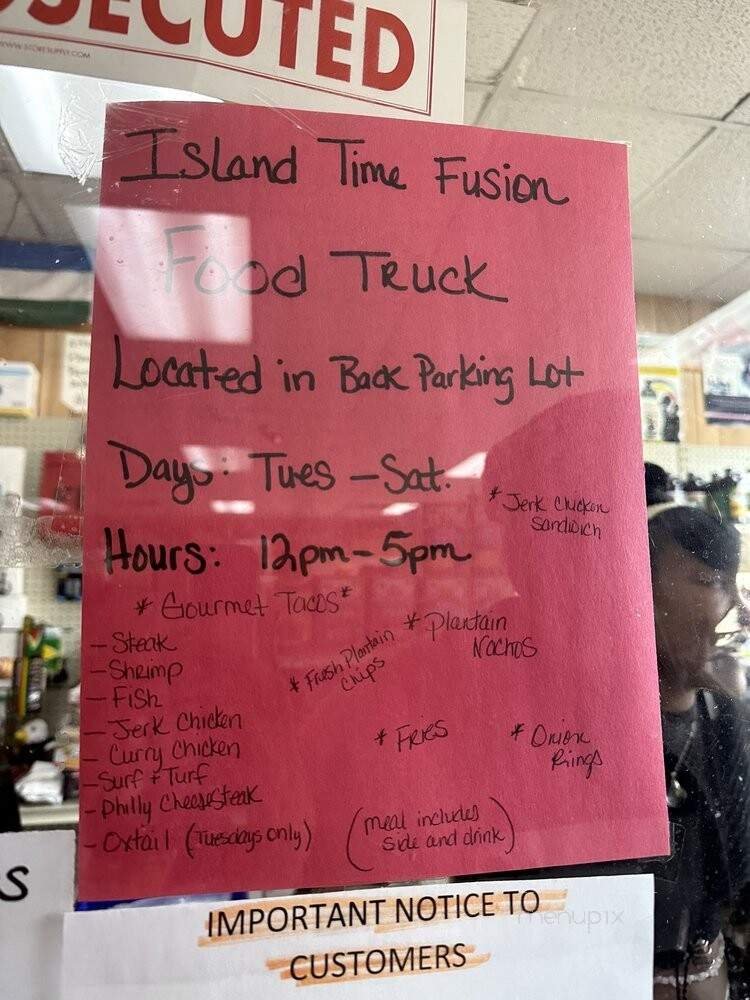 SECUTED
WWW.STORESUPPLY.COM
Island Time Fusion
Food Truck
Located in Back Parking Lot
Days: Tues - Sat.
* Jerk Chicken
Sandwich
Hours: 12pm - 5pm
* Gourmet Tacos *
- Steak
- Shrimp
- Fish
- Jerk Chicken
- Curry Chicken
- Surf + Turf
- Philly Cheesesteak
- Oxtail (Tuesdays only)
* Plantain
Nachos
* Fresh Plantain
Chips
* Fries
* Onion
Rings
(meal includes
side and drink)
S
IMPORTANT NOTICE TO
CUSTOMERS
menupix